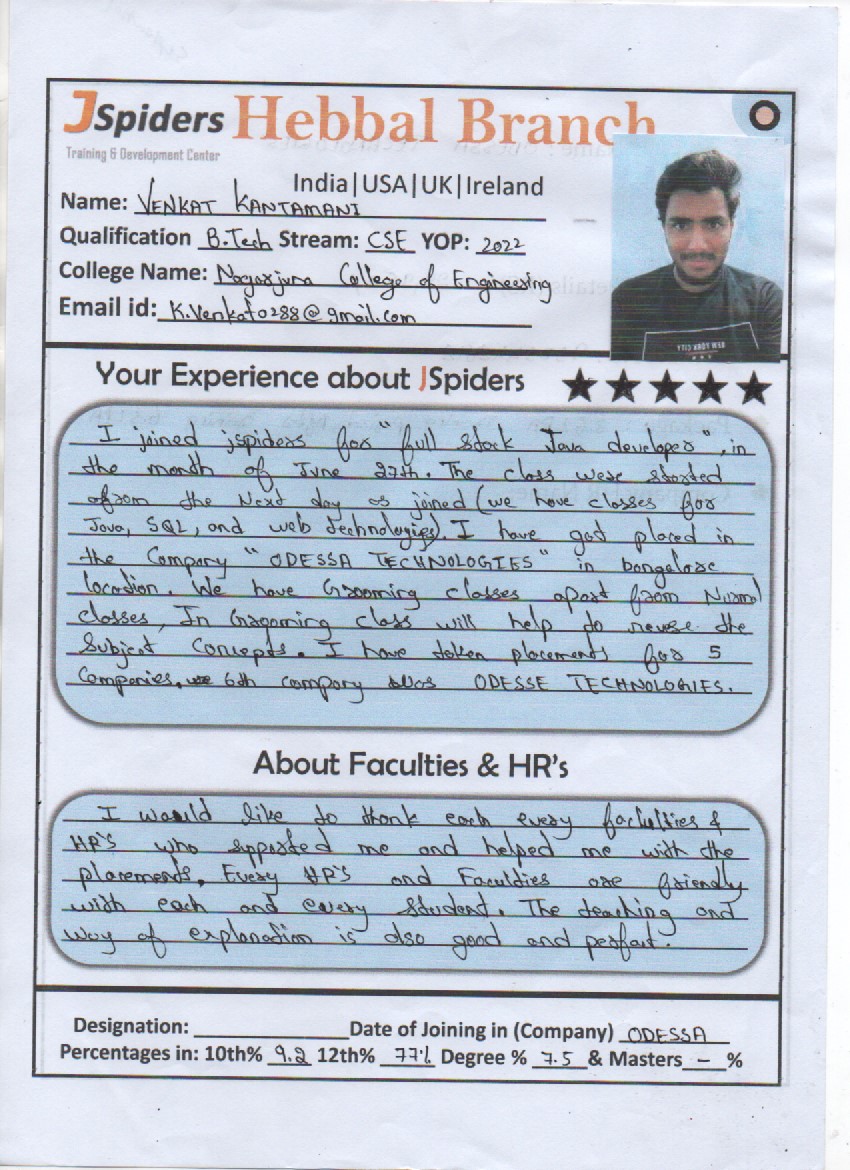 JSpiders Hebbal Branch
Training & Development Center
India|USA|UK|Ireland
Name: VENKAT KANTAMANI
Qualification B.Tech Stream: CSE YOP: 2022
College Name: Nagarjuna College of Engineering
Email id: K.Venkat0288@gmail.com
NEW YORK CITY
Your Experience about JSpiders ★★★★★
I joined jspiders for "full stack Java developer", in
the month of June 27th. The class were started
from the Next day as joined (we have classes for
Java, SQL, and web technologies). I have got placed in
the Company "ODESSA TECHNOLOGIES" in bangalore
location. We have Grooming classes apart from Normal
classes, In Grooming class will help to revise the
Subject Concepts. I have taken placements for 5
Companies, 6th company was ODESSE TECHNOLOGIES.
About Faculties & HR's
I would like to thank each every facluties &
HR'S who supported me and helped me with the
placements. Every HR'S and Faculties are friendly
with each and every student. The teaching and
way of explanation is also good and perfect.
Designation: Date of Joining in (Company) ODESSA
Percentages in: 10th% 9.2 12th% 77% Degree % 7.5 & Masters - %